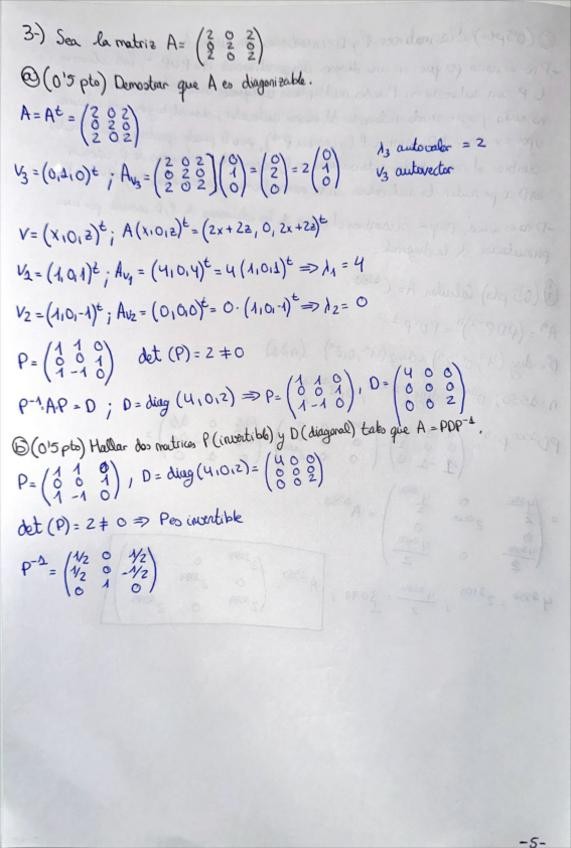 3-) Sea la matriz A= (2 0 2 / 0 2 0 / 2 0 2)
ⓐ(0'5 pto) Demostrar que A es diagonizable.
A=Aᵗ= (2 0 2 / 0 2 0 / 2 0 2)
V₃=(0,1,0)ᵗ ; Av₃= (2 0 2 / 0 2 0 / 2 0 2)(0 / 1 / 0)=(0 / 2 / 0)=2(0 / 1 / 0) λ₃ autovalor = 2
V₃ autovector
V=(x,0,z)ᵗ; A(x,0,z)ᵗ=(2x+2z, 0, 2x+2z)ᵗ
V₁=(1,0,1)ᵗ ; Av₁=(4,0,4)ᵗ=4(1,0,1)ᵗ ⇒ λ₁=4
V₂=(1,0,-1)ᵗ; Av₂=(0,0,0)ᵗ=0·(1,0,-1)ᵗ⇒λ₂=0
P=(1 1 0 / 0 0 1 / 1 -1 0) det(P)=2≠0
P⁻¹·A·P=D ; D=diag(4,0,2) ⇒ P=(1 1 0 / 0 0 1 / 1 -1 0), D=(4 0 0 / 0 0 0 / 0 0 2)
ⓑ(0'5 pto) Hallar dos matrices P(invertible) y D(diagonal) tales que A=PDP⁻¹.
P=(1 1 0 / 0 0 1 / 1 -1 0), D=diag(4,0,2)=(4 0 0 / 0 0 0 / 0 0 2)
det(P)=2≠0 ⇒ P es invertible
P⁻¹=(1/2 0 1/2 / 1/2 0 -1/2 / 0 1 0)
-5-